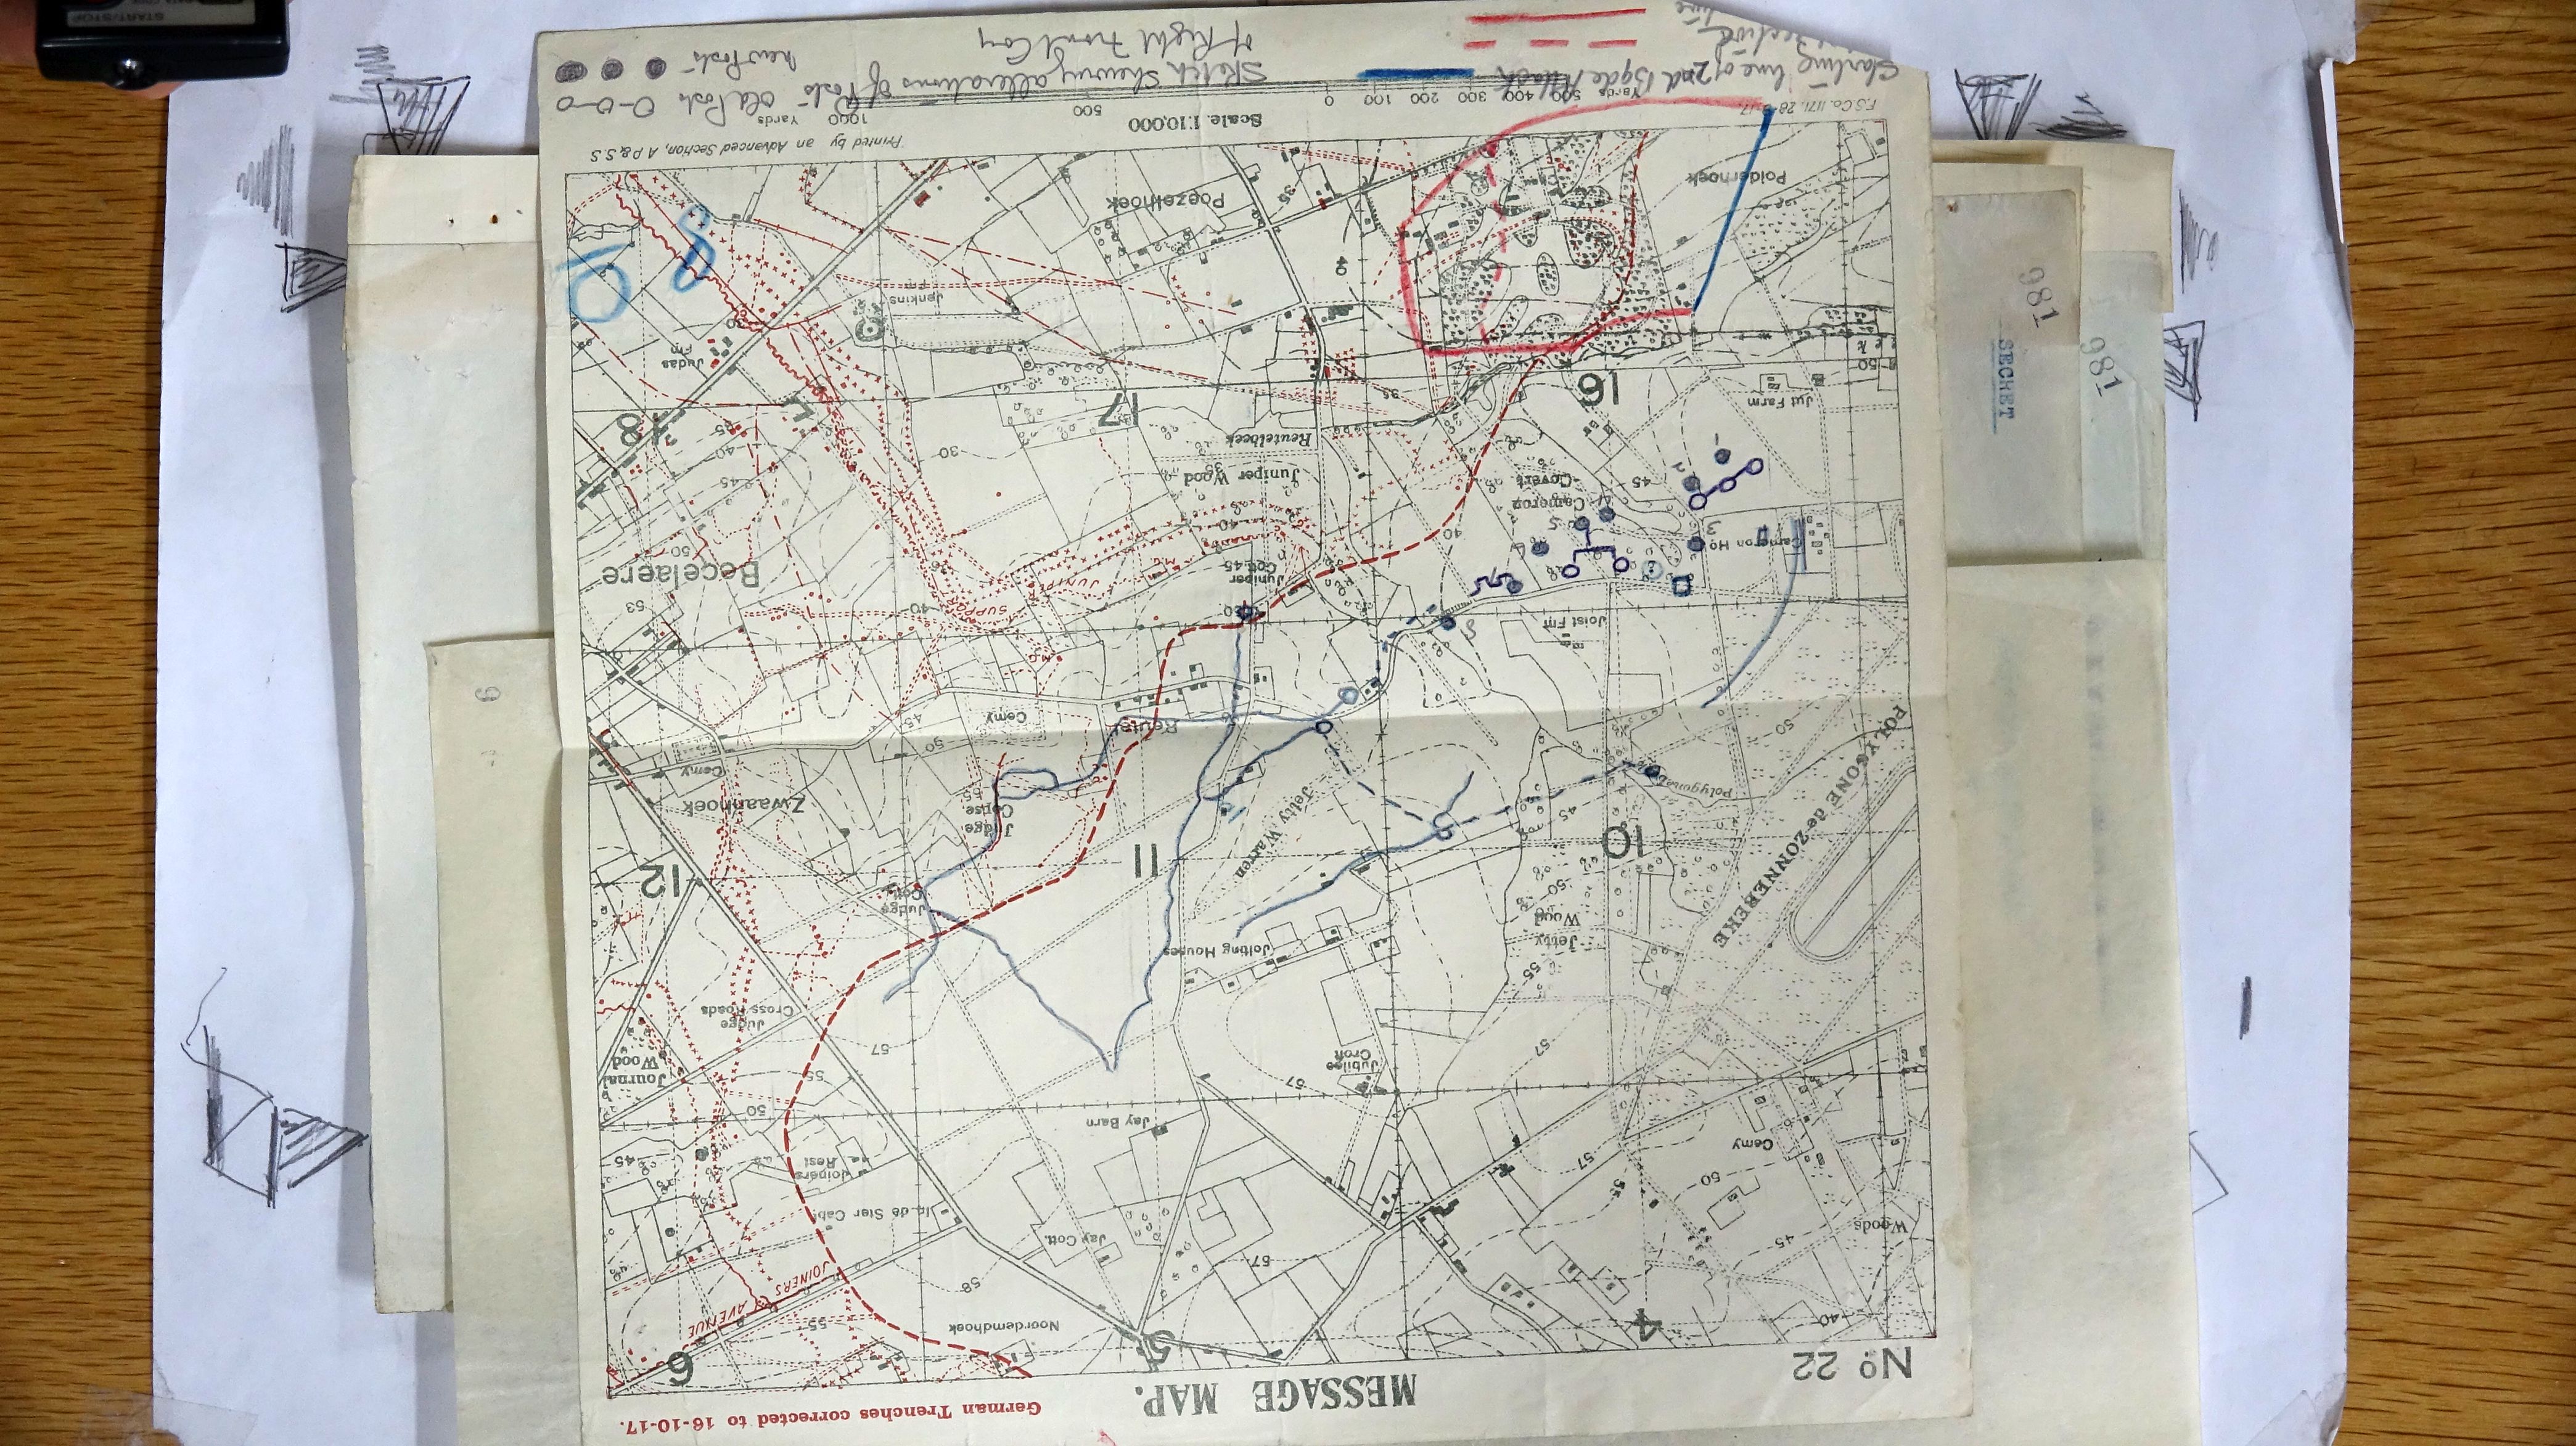 No 22
MESSAGE MAP.
German Trenches corrected to 16-10-17.
4
5
6
Noordemdhoek
JOINERS AVENUE
Woods
40
45
50
55
57
58
Jay Cott.
In de Ster Cabt
Joiners Rest
Cemy
Jay Barn
Jubilee Croft
Journal Wood
Judge Cross Roads
POLYGONE de ZONNEBEKE
Jetty Wood
Jolting Houses
Judge Cott.
10
11
12
Jetty Warren
Judge Copse
Zwaanhoek
Polygonebeek
Cemy
Reutel
Cemy
Joist Fm
SUPPORT
M.G.
Cameron Ho
Juniper Cott.
Becelaere
Cameron Covert
Juniper Wood
Reutelbeek
Jut Farm
16
17
18
Judas Fm
Jenkins Fm
Polderhoek
Poezelhoek
F.S.Co. 1171. 28-9-17.
Printed by an Advanced Section, A.P.&S.S.
Scale 1:10,000
Yards 500 400 300 200 100 0 500 1000 Yards
Starting line of 2nd Bgde Attack
Sketch shewing alterations of Posts
of Right Front Coy
Old Posts O-O-O
New Posts
SECRET
981
981
9
START/STOP